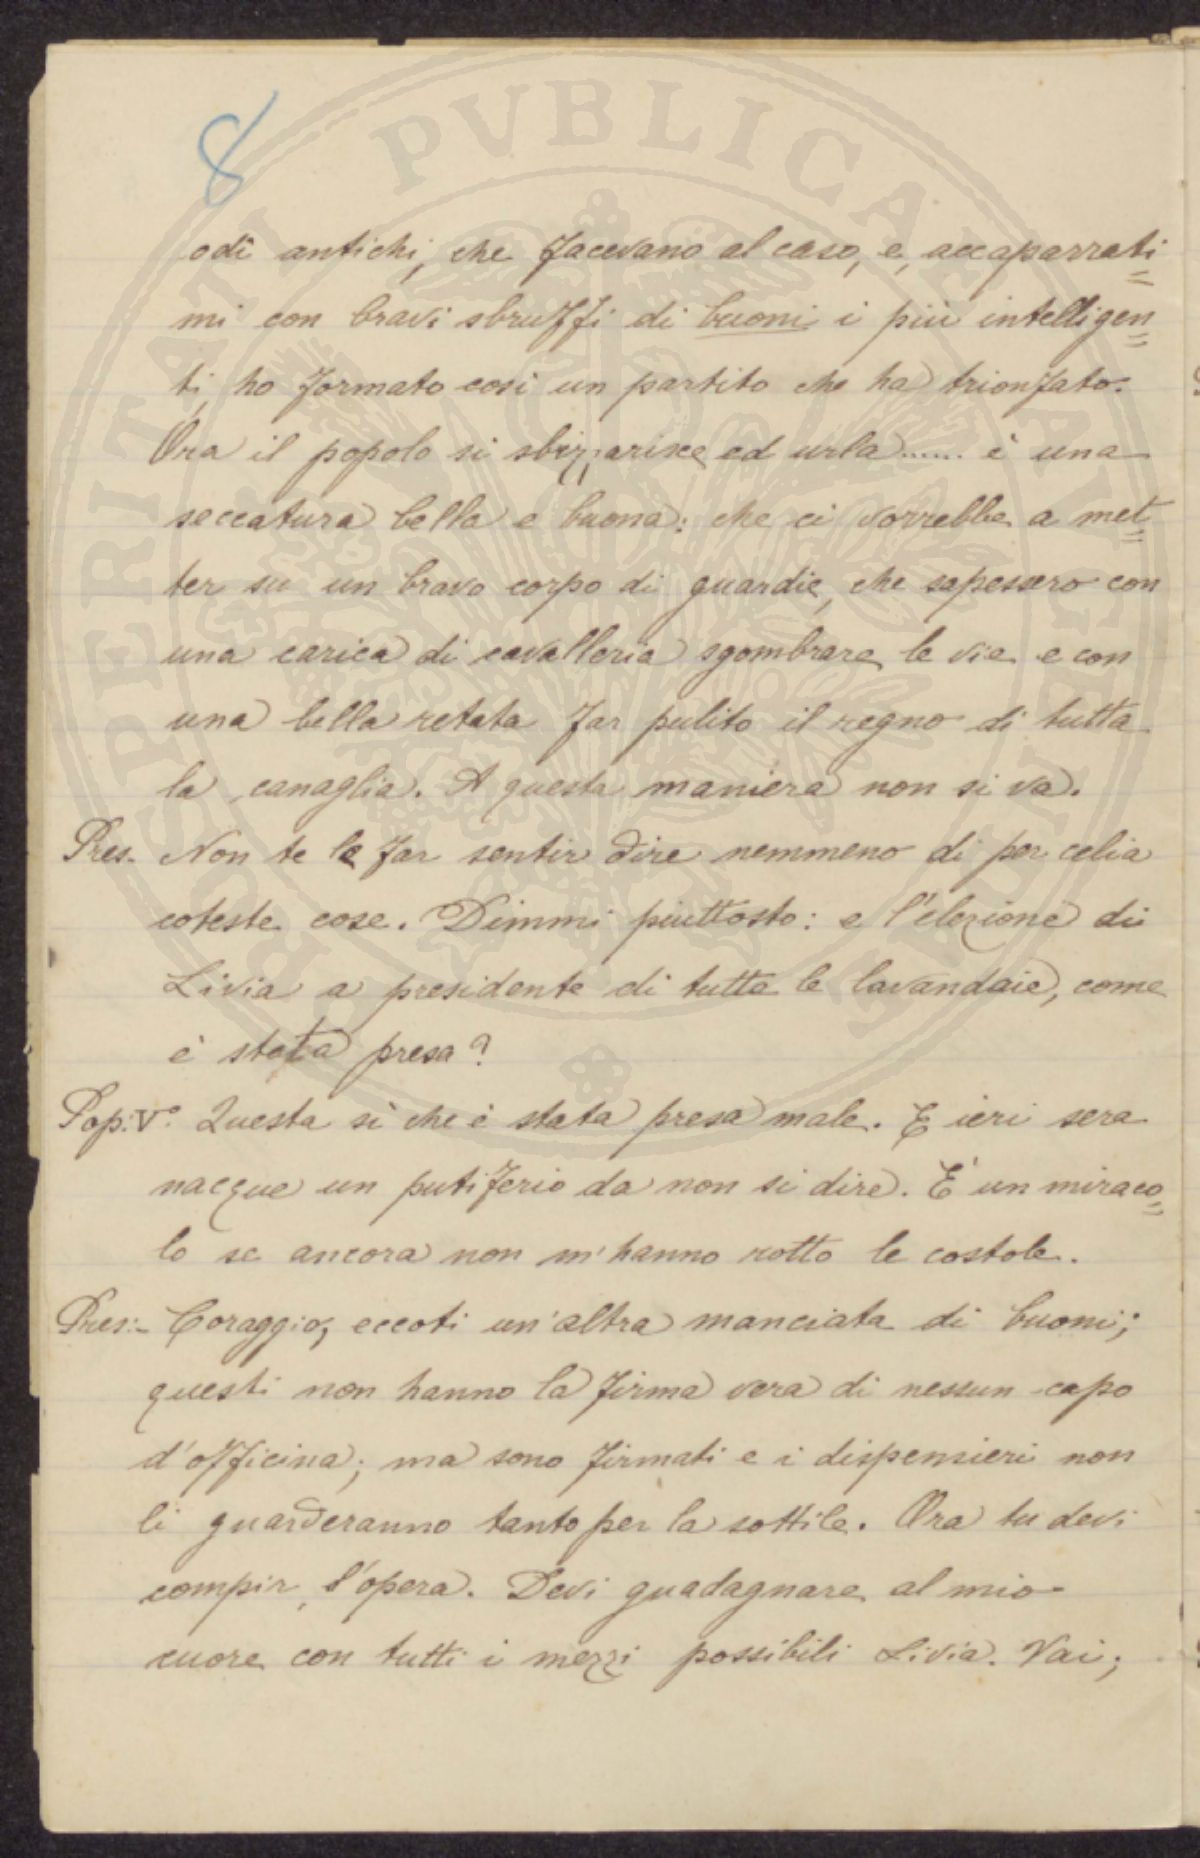 8
odî antichi, che facevano al caso, e, accaparrati=
mi con bravi sbruffi di buoni i più intelligen=
ti, ho formato così un partito che ha trionfato.
Ora il popolo si sbizzarisce ed urla...... è una
seccatura bella e buona: che ci vorrebbe a met=
ter su un bravo corpo di guardie, che sapessero con
una carica di cavalleria sgombrare le vie e con
una bella retata far pulito il regno di tutta
la canaglia. A questa maniera non si va.
Pres. Non te le far sentir dire nemmeno di per celia
coteste cose. Dimmi piuttosto: e l'elezione di
Livia a presidente di tutte le lavandaie, come
è stata presa?
Pop: Vº. Questa sì che è stata presa male. E ieri sera
nacque un putiferio da non si dire. È un miraco=
lo se ancora non m'hanno rotto le costole.
Pres:- Coraggio, eccoti un'altra manciata di buoni;
questi non hanno la firma vera di nessun capo
d'officina; ma sono firmati e i dispensieri non
li guarderanno tanto per la sottile. Ora tu devi
compir l'opera. Devi guadagnare al mio
cuore con tutti i mezzi possibili Livia. Vai;
PROSPERITATI PVBLICAE AVGENDAE